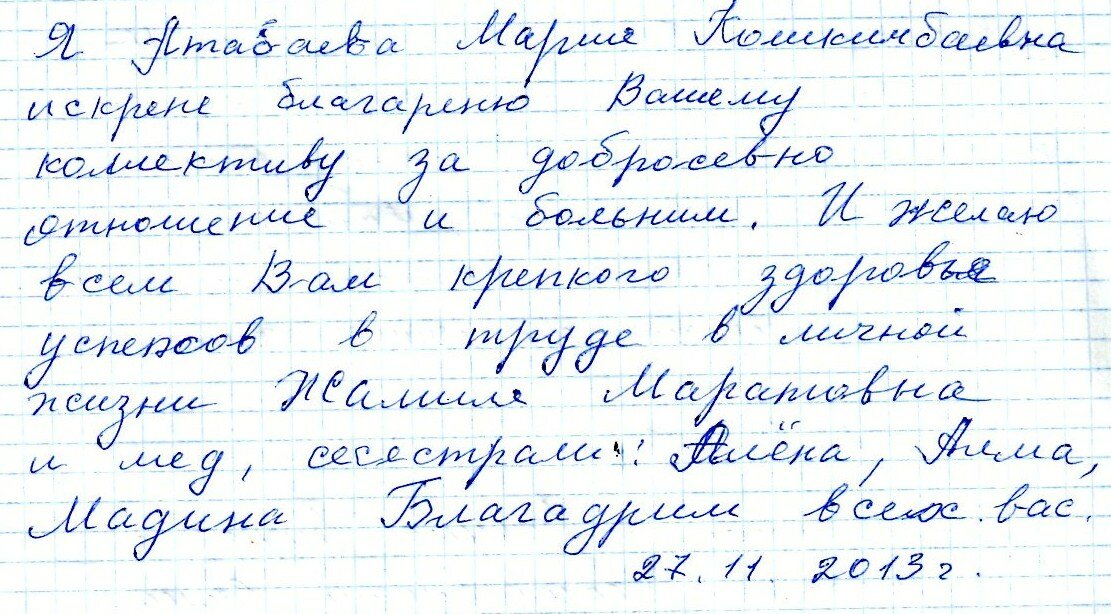 Я Атабаева Марие Кошкинбаевна
искрене благареню Вашему
коллективу за добросевно
отношение и больним. И желаю
всем Вам крепкого здоровье
успехов в труде в личной
жизни Жамиле Маратовна
и мед, сесестрам: Алёна, Алма,
Мадина Благадрим всех вас.
27.11.2013 г.